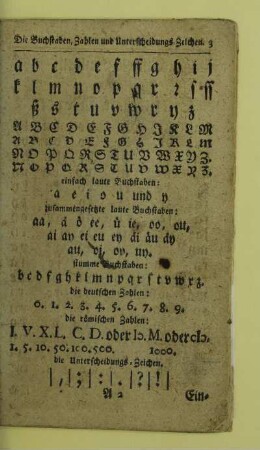 Die Buchstaben, Zahlen und Unterscheidungs Zeichen. 3
a b c d e f ff g h i j
k l m n o p q r ꝛ ſ s ſſ
ß t u v w x y z
A B C D E F G H I K L M
A B C D E F G H I K L M
N O P Q R S T U V W X Y Z.
N O P Q R S T U V W X Y Z.
einfach laute Buchstaben:
a e i o u und y
zusammengesetzte laute Buchstaben:
aa, á ö ee, ü ie, oo, ou,
ai ay ei eu ey äi äu áy
au, oi, oy, uy.
stumme Buchstaben:
b c d f g h k l m n p q r ſ t v w x z.
die deutschen Zahlen:
0. 1. 2. 3. 4. 5. 6. 7. 8. 9.
die römischen Zahlen:
I. V. X. L. C. D. oder IↃ. M. oder CIↃ.
1. 5. 10. 50. 100. 500. 1000.
die Unterscheidungs-Zeichen.
/ | , | ; | : | . | ? | ! |
A 2 Ein-